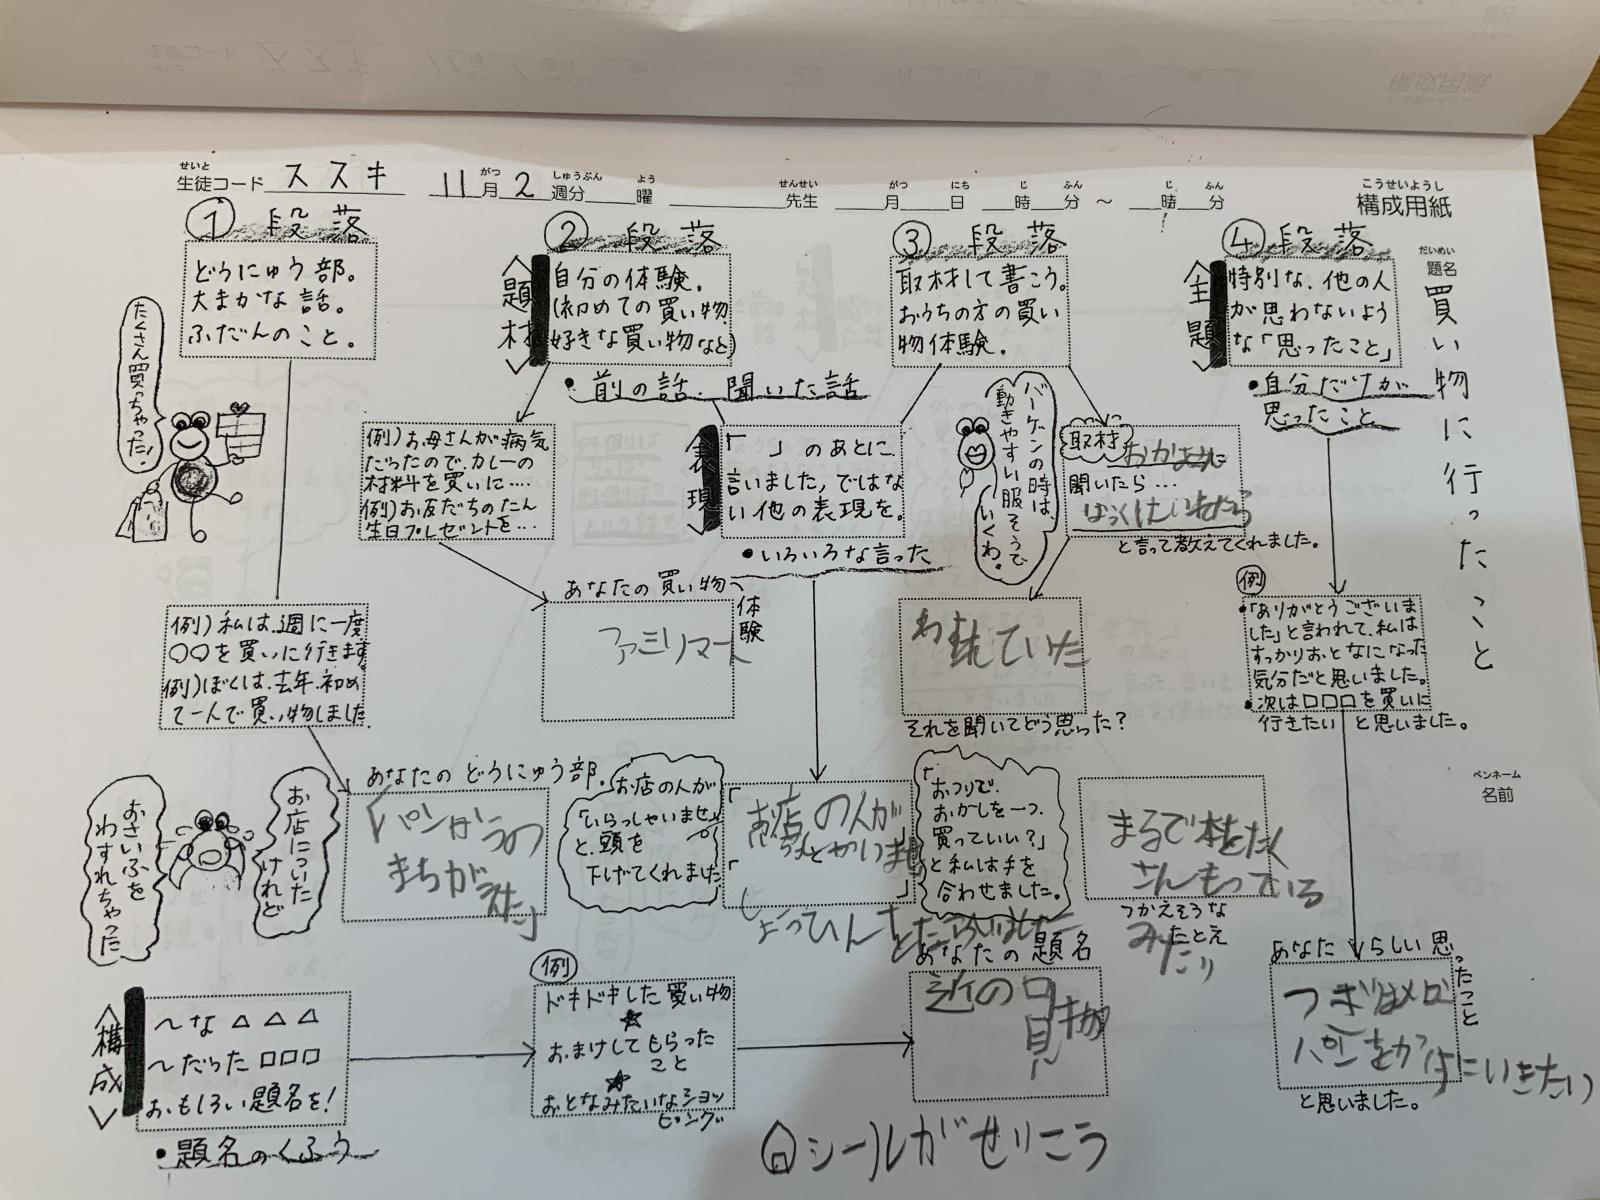 構成用紙
こうせいようし
せいと
生徒コード ススキ 11月2週分 曜 先生 月 日 時 分 ～ 時 分
がつ しゅうぶん よう せんせい がつ にち じ ふん じ ふん
だいめい
題名 買い物に行ったこと
ペンネーム
名前
① 段落
どうにゅう部。
大まかな話。
ふだんのこと。
たくさん買っちゃった!
例)私は、週に一度
○○を買いに行きます。
例)ぼくは、去年、初め
て一人で買い物しました。
あなたのどうにゅう部。
「パンかうの
まちがえた」
お店についた
けれど
おさいふを
わすれちゃった
② 段落
<題材>
自分の体験。
(初めての買い物
好きな買い物など)
・前の話・聞いた話
例)お母さんが病気
だったので、カレーの
材料を買いに…。
例)お友だちのたん
生日プレゼントを…
あなたの買い物体験
ファミリマート
<表現>
「 」のあとに、
言いました,ではな
い他の表現を。
・いろいろな言った
お店の人が
「いらっしゃいませ」
と、頭を
下げてくれました
お店の人が
③ 段落
取材して書こう。
おうちの方の買い
物体験。
バーゲンの時は
動きやすい服そうで
いくわ。
取材
聞いたら…
と言って教えてくれました。
ていた
それを聞いてどう思った?
「おつりで、
おかしを一つ、
買っていい?」
と私は手を
合わせました。
まるで本をたく
さんもっている
つかえそうな
たとえ
④ 段落
<主題>
特別な、他の人
が思わないよう
な「思ったこと」
・自分だけが
思ったこと
例
・「ありがとうございま
した」と言われて、私は
すっかりおとなになった
気分だと思いました。
・次は□□□を買いに
行きたい と思いました。
あなたらしい思ったこと
つぎはメロ
パンをかいにいきたい
と思いました。
<構成>
～な△△△
～だった□□□
おもしろい題名を!
・題名のくふう
例
ドキドキした買い物
★
おまけしてもらった
こと
★
おとなみたいなショッ
ピング
あなたの題名
シールがせいこう